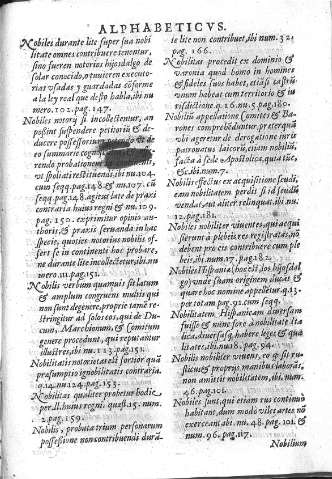 ALPHABETICVS.
Nobiles durante lite super sua nobi
litate omnes contribuere tenentur,
sino fueren notorios hijosdalgo de
solar conocido, o tuuieren executo-
rias vsadas y guardadas cõforme
a la ley real que desto habla, ibi nu
mero. 102. pag. 147.
Nobiles motorj si incolestentur, an
possint suspendere petitoriũ & de
ducere possessorium
eo summarie
rendo probationem
vt spoliati restituendi, ibi nu. 104.
cum seqq. pag. 148. & nu. 107. cũ
seqq. pag. 148. agitur late de praxi
contraria huius regni & nu. 109.
pag. 150. exprimitur opinio au-
thoris, & praxis seruanda in hac
specie, quoties notorius nobilis of-
fert se in continenti hoc probare,
ne durante lite incolestetur, ibi nu
mero. 111. pag. 151.
Nobilis verbum quamuis sit latum
& amplum congruens multis qui
non sunt degenere, proprie tamẽ re-
stringitur ad solos eos, qui de Du-
cum, Marchionum, & Comitum
genere procedunt, qui reputantur
illustres, ibi nu. 113. pag. 151.
Nobilitatis notorietas est fortior quá
præsumptio ignobilitatis contraria.
q. 14. nu. 124. pag. 153.
Nobilitas qualiter probetur hodie
per. ll. huius regni. quæst. 15. num.
2. pag. 159.
Nobilis, probata trium personarum
possessione non contribuendi durã-
te lite non contribuet, ibi num. 32.
pag. 166.
Nobilitas procedit ex dominio &
varonia quod homo in homines
& fideles suos habet, etiasi castrũ
vnum habeat cum territorio & iu
risdictione q. 16. nu. 5. pag. 180.
Nobiliũ appellatione Comites & Ba-
rones comprehẽduntur, præterquã
vbi ageretur de derogatione iuris
patronatus laicorũ, etiam nobiliũ,
facta à sede Apostolica, quia tũc,
& c. ibi, num. 7.
Nobilis effectus ex acquisitione feudi,
eam nobilitatem perdit si id feudũ
vendat, aut aliter relinquat. ibi nu.
12. pag. 181.
Nobiles nobiliter viuentes, qui acqui
sierunt à plebeiis res registratas, nõ
debent pro eis contribuere cum ple
beis, ibi num. 17. pag. 182.
Nobiles Hispaniæ (hoc est, los hijosdal
go) vnde suam originem ducãt &
quare hoc nomine appelletur, q. 13.
per totam pag. 92. cum seqq.
Nobilitatem Hispanicam diuersam
fuisse & nunc fore à nobilitate Ita
lica, diuersasq; habere leges & qua
litates, ibi nu. 94. pag. 118.
Nobilis nobiliter viuens, eo q sit ru-
sticus & propriis manibus laborás,
non amittit nobilitatem, ibi, num.
46. pag. 101.
Nobiles sunt, qui etiam rus continuò
habitant, dum modo viles artes nõ
exerceant. ibi. nu. 48. pag. 101. &
num. 96. pag. 117.
Nobilium